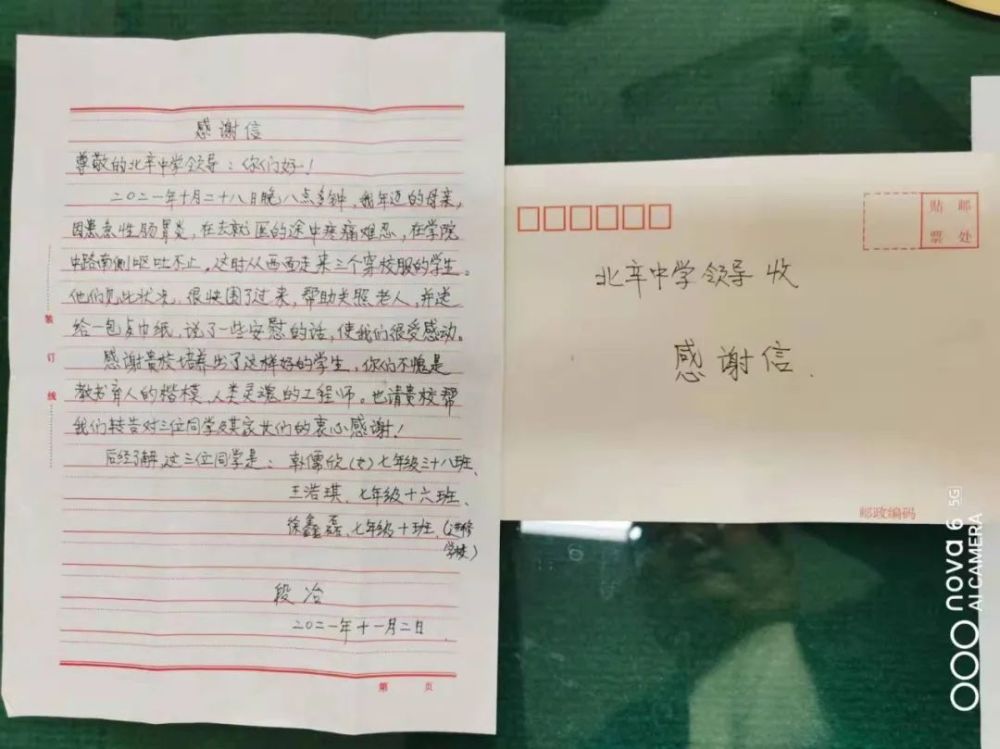 感谢信
尊敬的北辛中学领导：你们好！
二〇二一年十月二十八日晚八点多钟，我年迈的母亲，
因患急性肠胃炎，在去就医的途中疼痛难忍，在学院
中路南侧呕吐不止，这时从西面走来三个穿校服的学生。
他们见此状况，很快围了过来，帮助关照老人，并递
给一包卫巾纸，说了一些安慰的话，使我们很受感动。
感谢贵校培养出了这样好的学生，你们不愧是
教书育人的楷模，人类灵魂的工程师。也请贵校帮
我们转告对三位同学及其家长们的衷心感谢！
后经了解，这三位同学是：韩儒欣（女）七年级三十八班、
王浩琪、七年级十六班、
徐鑫磊、七年级十班、（进修
学校）
段冶
二〇二一年十一月二日
装
订
线
第 页
贴 邮
票 处
北辛中学领导 收
感谢信.
邮政编码
nova 6 5G
AI CAMERA